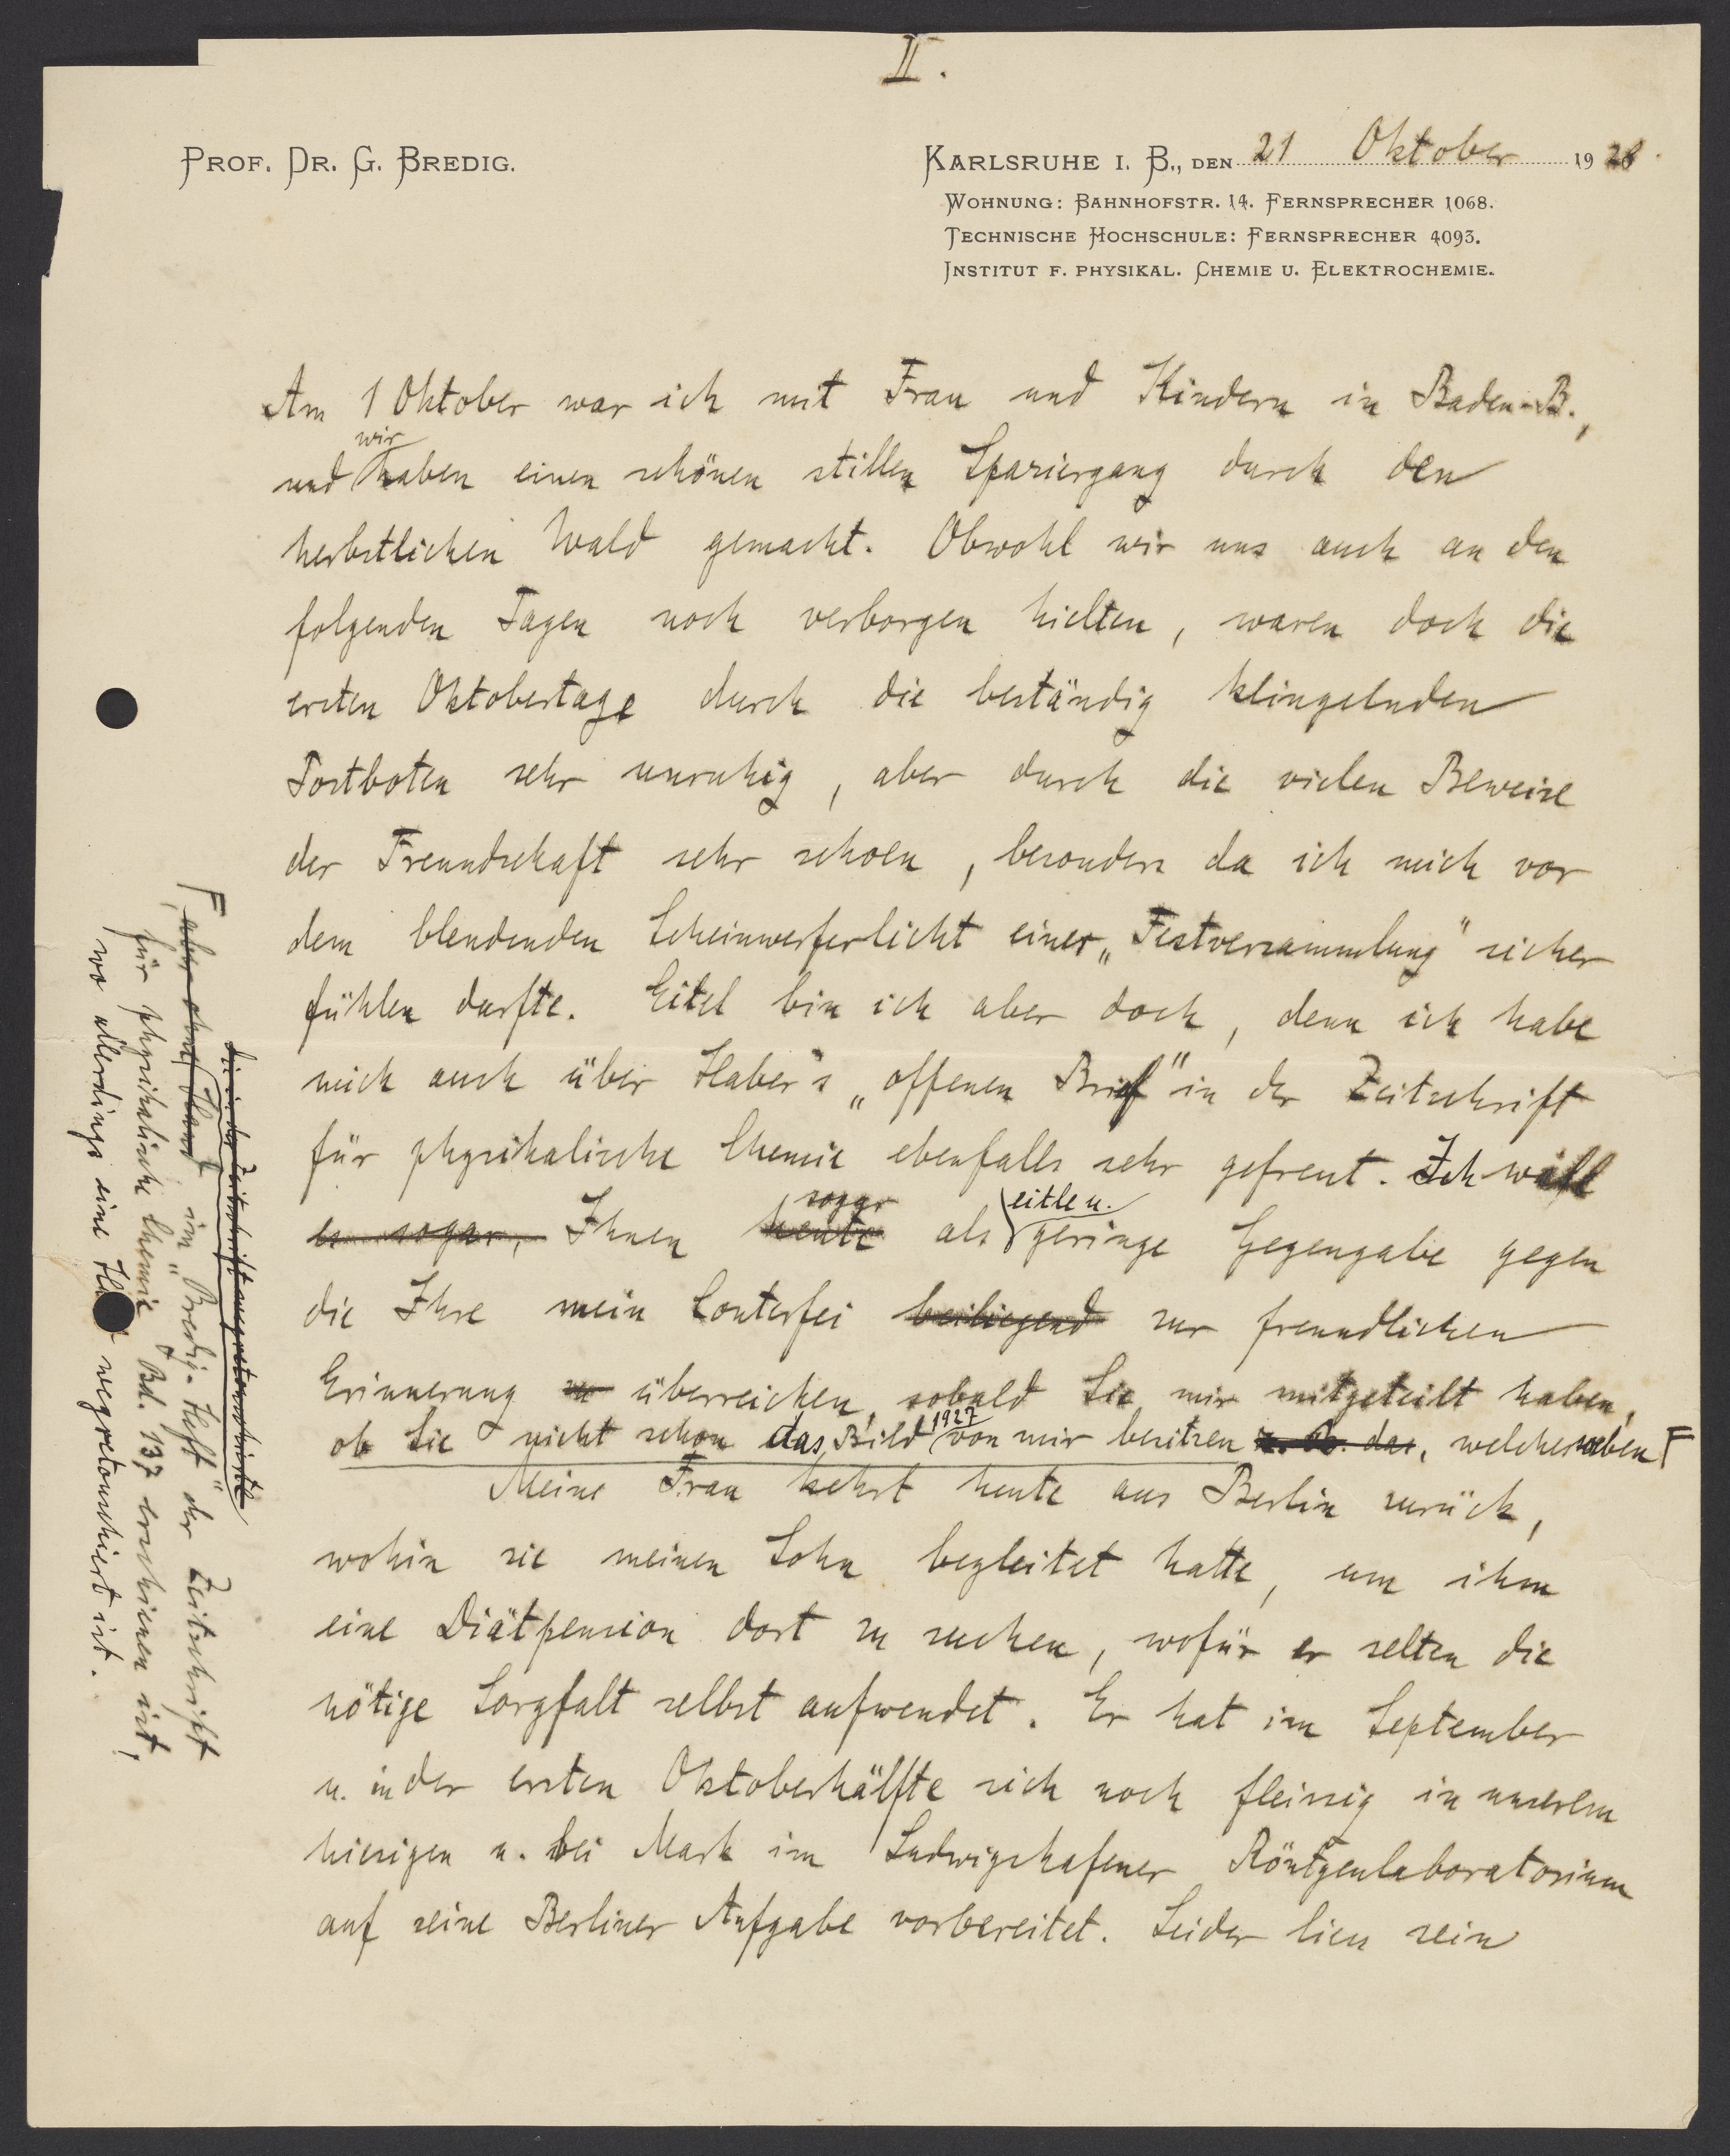 II.
PROF. DR. G. BREDIG.
KARLSRUHE I. B., DEN 21 Oktober 1928.
WOHNUNG: BAHNHOFSTR. 14. FERNSPRECHER 1068.
TECHNISCHE HOCHSCHULE: FERNSPRECHER 4093.
INSTITUT F. PHYSIKAL. CHEMIE U. ELEKTROCHEMIE.
Am 1 Oktober war ich mit Frau und Kindern in Baden-B.,
und wir haben einen schönen stillen Spaziergang durch den
herbstlichen Wald gemacht. Obwohl wir uns auch an den
folgenden Tagen noch verborgen hielten, waren doch die
ersten Oktobertage durch die beständig klingelnden
Postboten sehr unruhig, aber durch die vielen Beweise
der Freundschaft sehr schoen, besonders da ich mich vor
dem blendenden Scheinwerferlicht einer „Festversammlung" sicher
fühlen durfte. Eitel bin ich aber doch, denn ich habe
mich auch über Haber's „offenen Brief" in der Zeitschrift
für physikalische Chemie ebenfalls sehr gefreut. Ich will
es sogar, Ihnen heute sogar als eitle u. geringe Gegengabe gegen
die Ihre mein Conterfei beiliegend zur freundlichen
Erinnerung zu überreichen, sobald Sie mir mitgeteilt haben,
ob Sie nicht schon das Bild 1927 von mir besitzen z. B. das, welches soeben F
Meine Frau kehrt heute aus Berlin zurück,
wohin sie meinen Sohn begleitet hatte, um ihm
eine Diätpension dort zu suchen, wofür er selten die
nötige Sorgfalt selbst aufwendet. Er hat im September
u. in der ersten Oktoberhälfte sich noch fleissig in unserem
hiesigen u. bei Mark im Ludwigshafener Röntgenlaboratorium
auf seine Berliner Aufgabe vorbereitet. Leider liess sein
die in der Zeitschrift wegretouchirte
F aber ohne Hand im „Bredig-Heft" der Zeitschrift
für physikalische Chemie Bd. 137 erschienen ist,
wo allerdings eine wegretouchiert ist.